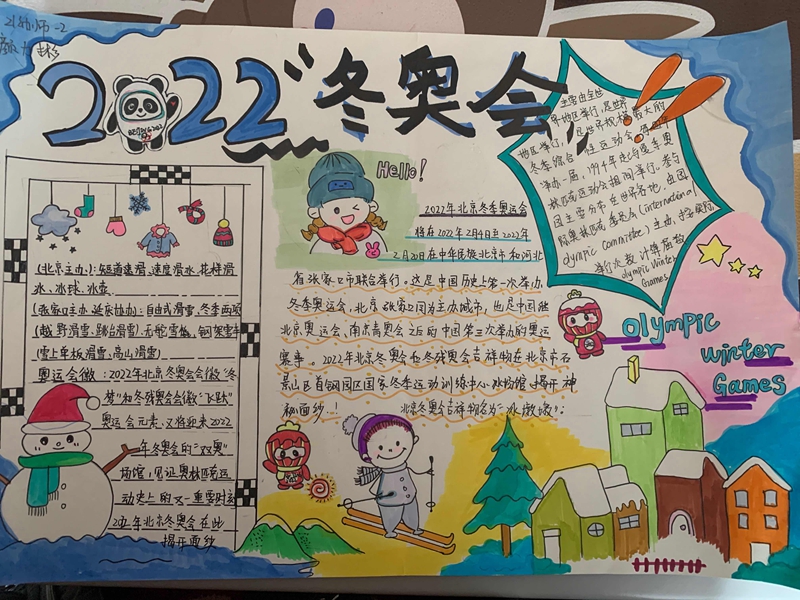 21幼师-2
2022"冬奥会"
BEIJING 2022
Hello!
主要由全地
界地区举行,是世界
地区举行,是世界规模最大的
冬季综合性运动会,每四年
净办一届,1994年起与夏季奥
林匹克运动会相间举行。参与
国主要分布在世界各地,由国
际奥林匹克委员会(international
olympic Committee)主办,按实际
举行次数计算届数
olympic Winter
Games
2022年北京冬季奥运会
将在2022年2月4日至2022年
2月20日在中华民族北京市和河北
省张家口市联合举行。这是中国历史上第一次举办
冬季奥运会,北京、张家口同为主办城市,也是中国继
北京奥运会、南京青奥会之后的中国第三次举办的奥运
赛事。2022年北京冬奥会和冬残奥会吉祥物在北京市石
景山区首钢园区国家冬季运动训练中心冰物馆,揭开神
秘面纱!
北京冬奥会吉祥物名为"冰墩墩"。
(北京主办):短道速滑、速度滑冰、花样滑
冰、冰球、冰壶
(张家口主办 延庆协办):自由式滑雪、冬季两项
(越野滑雪、跳台滑雪)、无舵雪橇、钢架雪车
(雪上车板滑雪、高山滑雪)
奥运会徽:2022年北京冬奥会会徽"冬
梦"和冬残奥会会徽"飞跃"
奥运会元素,又将迎来2022
年冬奥会的"双奥"
场馆,见证奥林匹克运
动史上的又一重要时刻
2022年北京冬奥会在此
揭开面纱
olympic
winter
Games